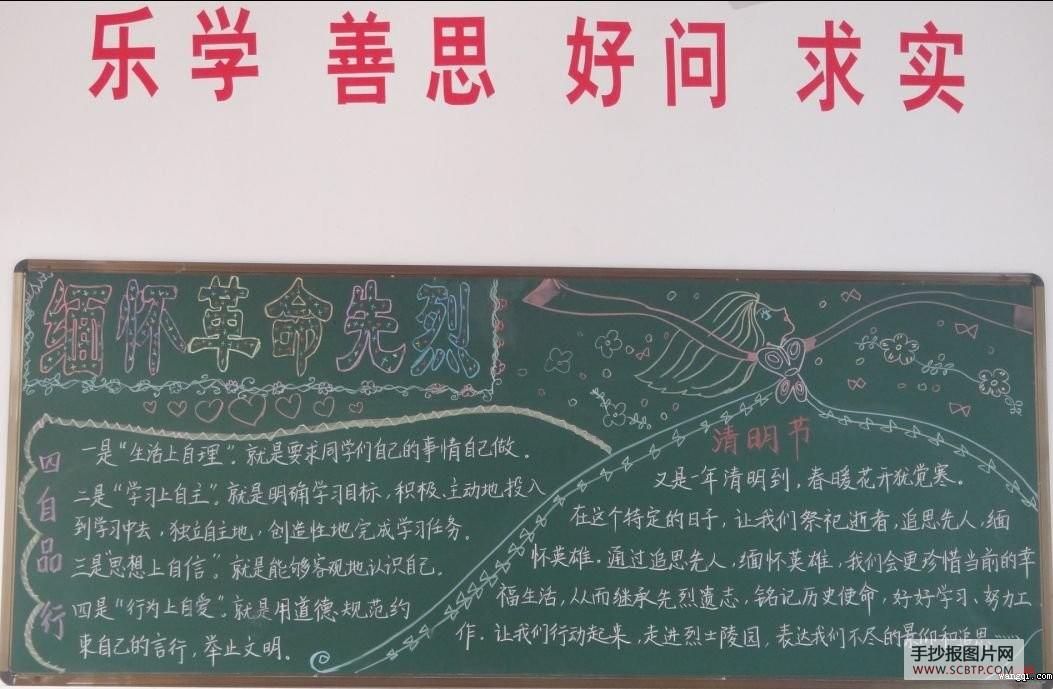 乐学 善思 好问 求实
缅怀革命先烈
四自品行
一是“生活上自理”。就是要求同学们自己的事情自己做。
二是“学习上自主”。就是明确学习目标，积极、主动地投入
到学习中去，独立自主地，创造性地完成学习任务。
三是“思想上自信”。就是能够客观地认识自己。
四是“行为上自爱”。就是用道德、规范约
束自己的言行，举止文明。
清明节
又是一年清明到，春暖花开犹觉寒。
在这个特定的日子，让我们祭祀逝者，追思先人，缅
怀英雄。通过追思先人，缅怀英雄，我们会更珍惜当前的幸
福生活，从而继承先烈遗志，铭记历史使命，好好学习、努力工
作。让我们行动起来，走进烈士陵园，表达我们不尽的景仰和追思……
手抄报图片网
WWW.SCBTP.COM
wangqi.com